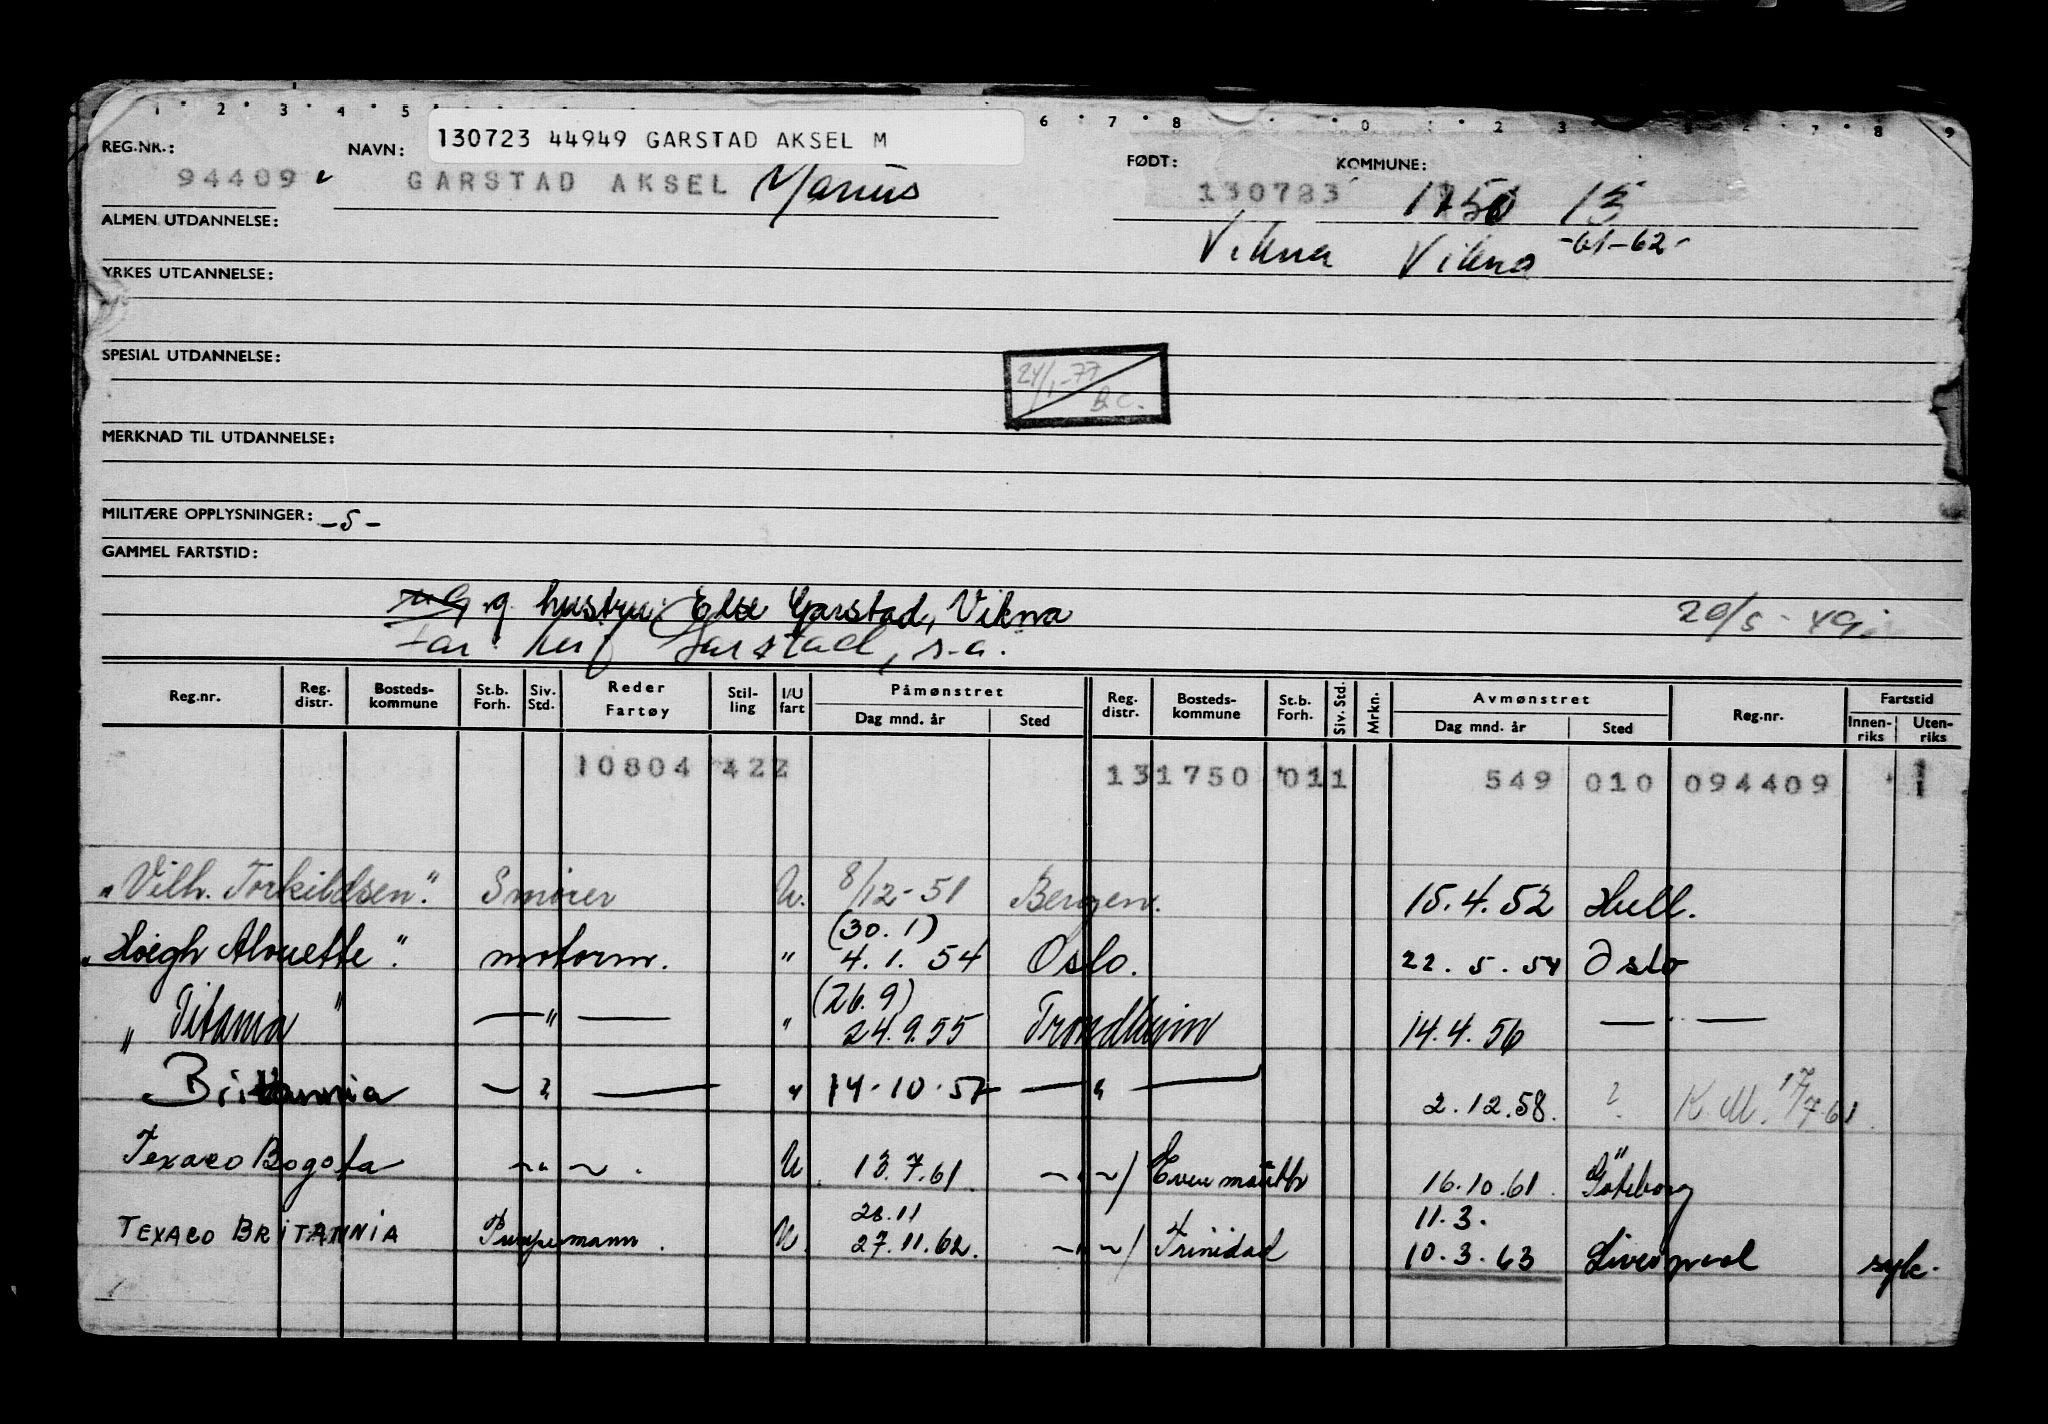 1 2 3 4 5 6 7 8 0 1 2 3 7 8 9
REG.NR.: NAVN: 130723 44949 GARSTAD AKSEL M FØDT: KOMMUNE:
94409 GARSTAD AKSEL Marius 130783 1750 13
ALMEN UTDANNELSE: Vikna Vikna -61-62-
YRKES UTDANNELSE:
SPESIAL UTDANNELSE:
24/1-77
B.C.
MERKNAD TIL UTDANNELSE:
MILITÆRE OPPLYSNINGER: -5-
GAMMEL FARTSTID:
g. hustru: Else Garstad, Vikna
far: Leif Garstad, s.a. 20/5-49
Reg.nr. Reg. distr. Bosteds- kommune St.b. Forh. Siv. Std. Reder Fartøy Stil- ling I/U fart Påmønstret Reg. distr. Bosteds- kommune St.b. Forh. Siv. Std. Mrkn. Avmønstret Reg.nr. Fartstid
Dag mnd. år Sted Dag mnd. år Sted Innen- riks Uten- riks
10804 422 131750 011 549 010 094409 1
"Vilh. Torkildsen". Smører U. 8/12-51 Bergen. 15.4.52 Hull.
(30.1)
"Höegh Alouette". motorm. " 4.1.54 Oslo. 22.5.54 Oslo
(26.9)
"Titania" — " — " 24.9.55 Trondheim 14.4.56 — —
Britannia — " — " 14.10.57 — " — 2.12.58. ? K.M. 17/7-61
Texaco Bogota ~ " ~ . U. 13.7.61 ~ " ~ / 16.10.61. Göteborg
28.11 11.3.
TEXACO BRITANNIA Pumpemann. U. 27.11.62. ~ " ~ / Trinidad 10.3.63 Liverpool syk.